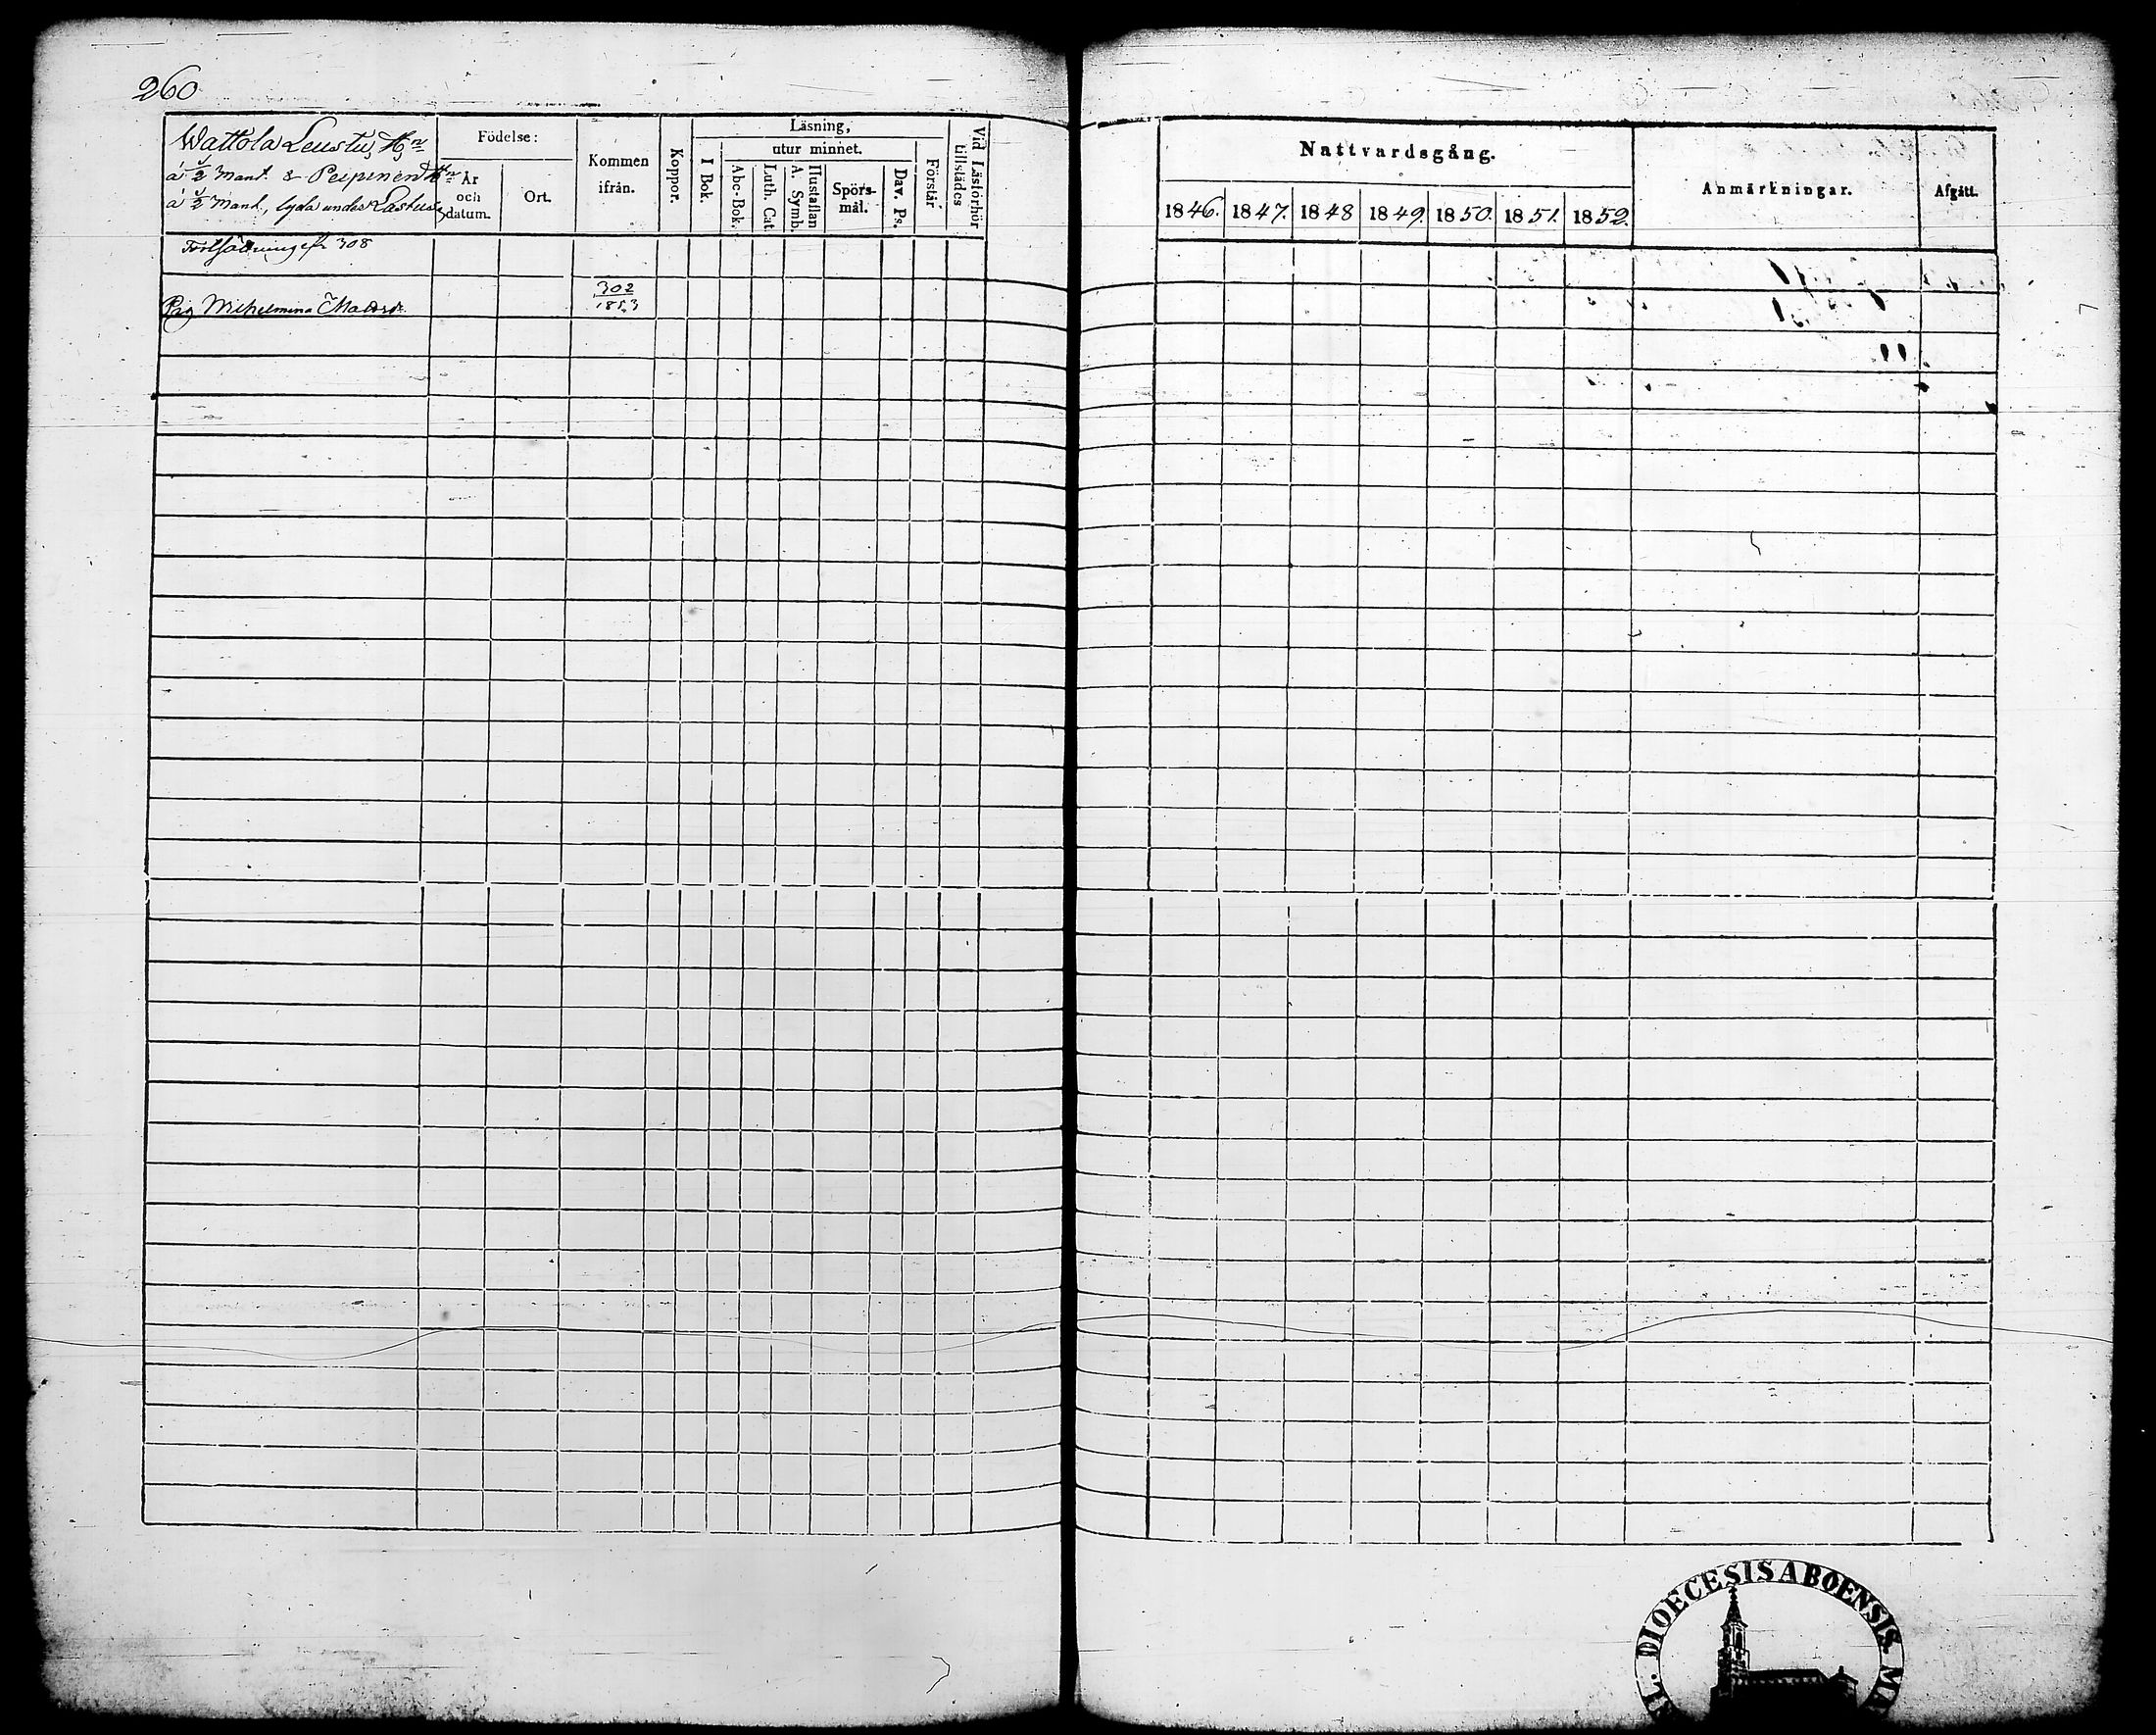 260
Wattola Leustu, Hn
à 1/2 Mant. & Peipinen Hn
à 1/2 Mant., lyda under Lastusa
Födelse:
År och datum.
Ort.
Kommen ifrån.
Koppor.
Läsning,
I Bok.
utur minnet.
Abc-Bok.
Luth. Cat
A. Symb.
Hustaflan
Spörs-
mål.
Dav. Ps.
Förstår
Vid Läsförhör
tillstädes
Nattvardsgång.
1846. 1847. 1848 1849. 1850. 1851. 1852.
Anmärkningar.
Afgått.
308
Pig Wilhelmina
302
1853
DIOECESIS ABOENSIS